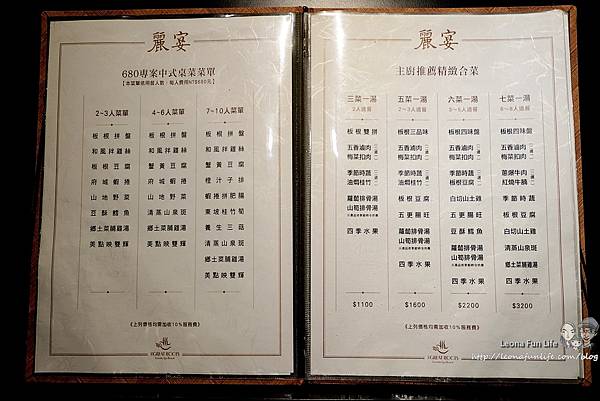 麗宴
680專案中式桌菜菜單
【本菜單依用餐人數，每人費用NT$680元】
2~3人菜單
板根拼盤
和風拌雞絲
板根豆腐
府城蝦捲
山地野菜
豆酥鱈魚
鄉土菜脯雞湯
美點映雙輝
4~6人菜單
板根拼盤
和風拌雞絲
蟹黃豆腐
府城蝦捲
山地野菜
清蒸山泉斑
鄉土菜脯雞湯
美點映雙輝
7~10人菜單
板根拼盤
和風拌雞絲
蟹黃豆腐
橙汁子排
蝦捲拼肥腸
東坡桂竹筍
養生三菇
清蒸山泉斑
鄉土菜脯雞湯
美點映雙輝
《上列價格均需加收10%服務費》
板根
GREAT ROOTS
麗宴
主廚推薦精緻合菜
三菜一湯
2人適餐
板根雙拼
五香滷肉
梅菜扣肉
二選一
季節時蔬
油燜桂竹
二選一
蘿蔔排骨湯
山筍排骨湯
四季水果
$1100
五菜一湯
2~3人適餐
板根三品味
五香滷肉
梅菜扣肉
二選一
季節時蔬
油燜桂竹
二選一
板根豆腐
五更腸旺
蘿蔔排骨湯
山筍排骨湯
四季水果
$1600
六菜一湯
3~5人適餐
板根四味盤
五香滷肉
梅菜扣肉
二選一
季節時蔬
板根豆腐
二選一
白切山土雞
五更腸旺
豆酥鱈魚
蘿蔔排骨湯
山筍排骨湯
四季水果
$2200
七菜一湯
6~8人適餐
板根四味盤
蔥爆牛肉
紅燒牛腩
二選一
季節時蔬
板根豆腐
白切山土雞
清蒸山泉斑
鄉土菜脯雞湯
四季水果
$3200
《上列價格均需加收10%服務費》
GREAT ROOTS
Leona Fun Life
http://leonafunlife.com/blog